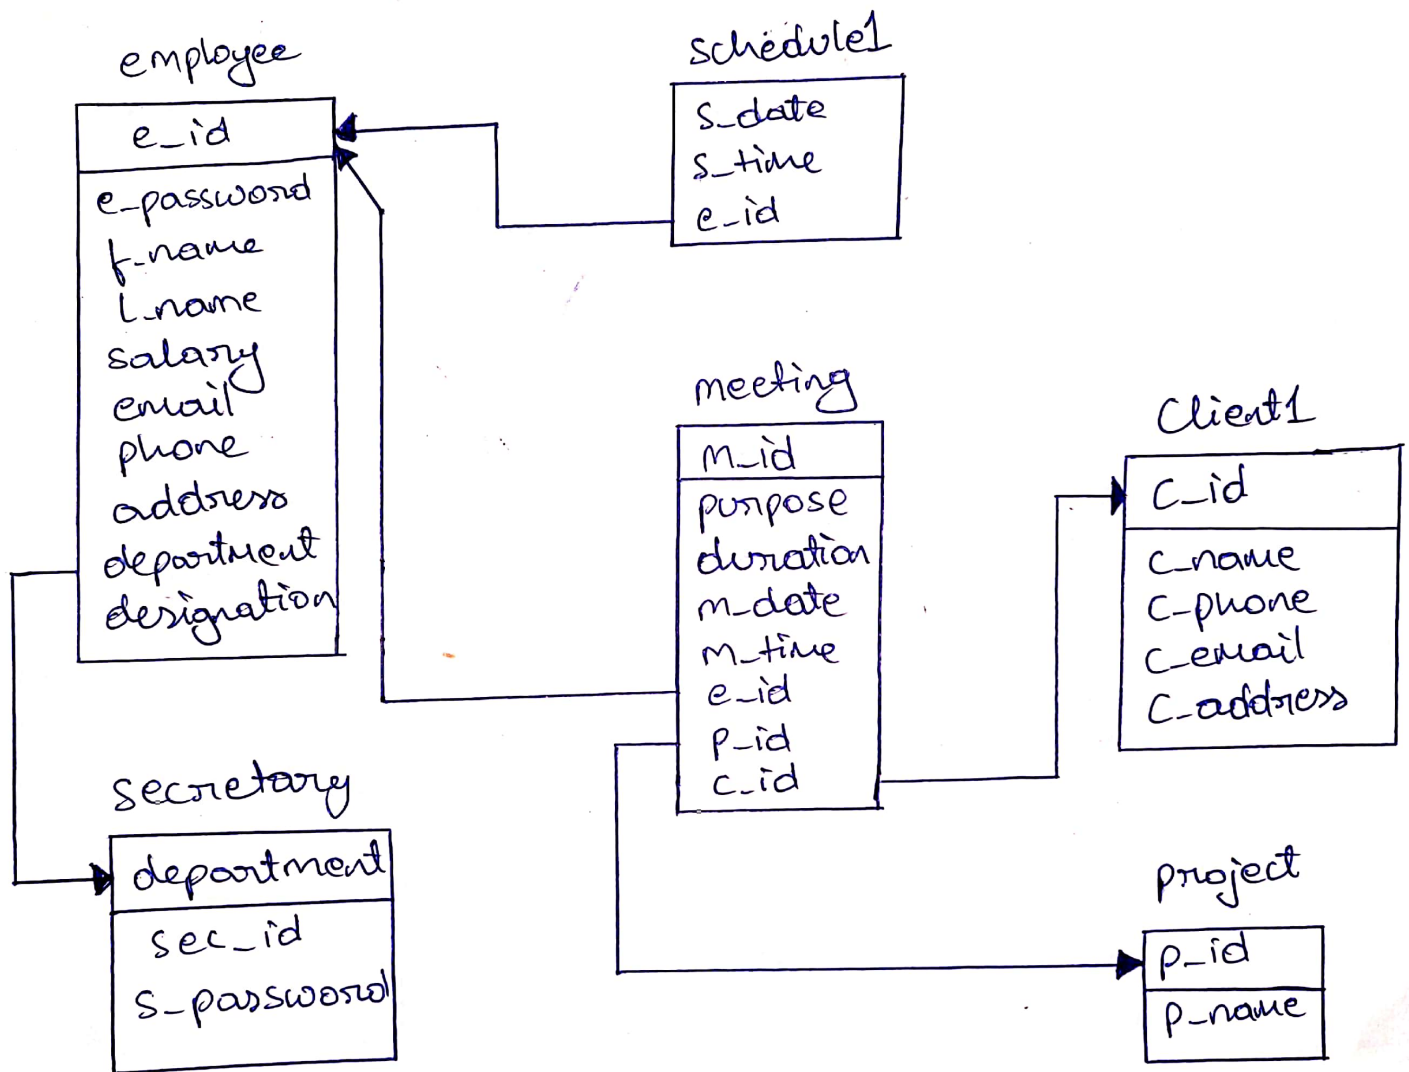 employee
e_id
e_password
f_name
l_name
salary
email
phone
address
department
designation
schedule1
s_date
s_time
e_id
meeting
m_id
purpose
duration
m_date
m_time
e_id
p_id
c_id
Client1
C_id
C_name
C_phone
C_email
C_address
secretary
department
sec_id
s_password
project
p_id
p_name